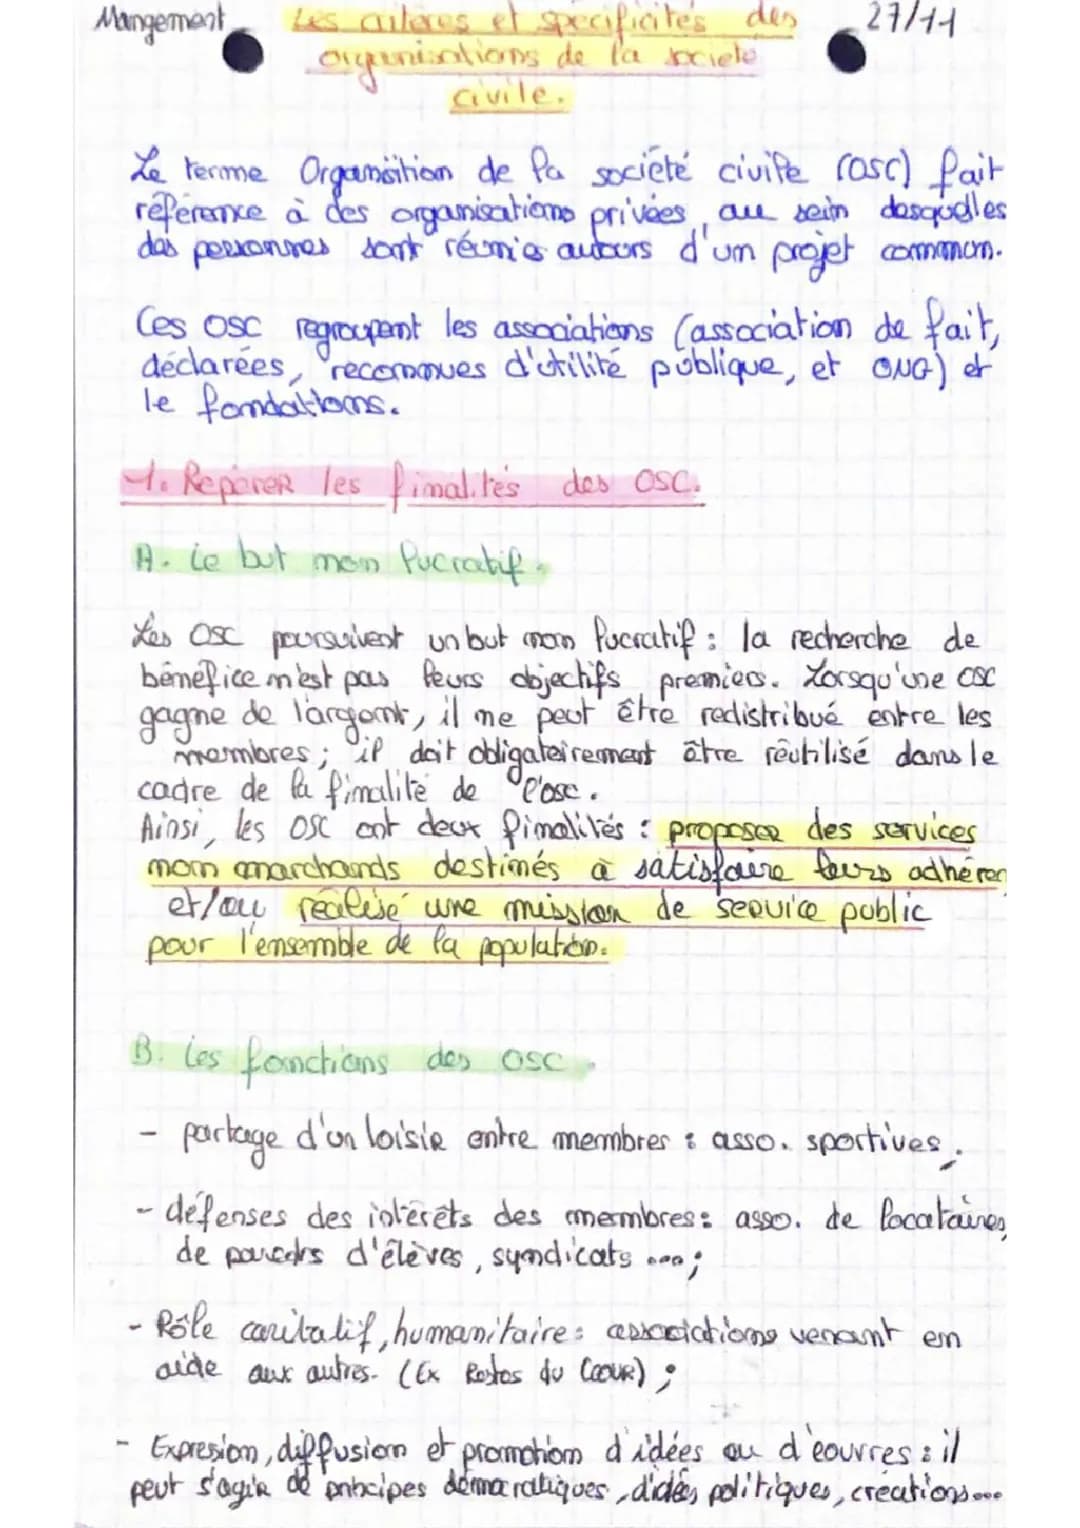 Mangement
27/11
Les critères et spécificités des
organisations de la société
civile.
Le terme Organisition de la société civile (OSC) fait
référence à des organisations privées, au sein desquelles
des personnes sont réunies autours d'un projet commun.
Ces OSC regroupent les associations (association de fait,
déclarées, reconnues d'utilité publique, et ONG) et
le fondations.
1. Reperer les finalités des OSC.
A. Le but non lucratif.
Les OSC poursuivent un but non lucratif : la recherche de
bénéfice n'est pas leurs objectifs premiers. Lorsqu'une OSC
gagne de l'argent, il ne peut être redistribué entre les
membres ; il doit obligatoirement être réutilisé dans le
cadre de la finalité de l'osc.
Ainsi, les OSC ont deux finalités : proposer des services
non marchands destinés à satisfaire leurs adhéren
et/ou réalisé une mission de service public
pour l'ensemble de la population.
B. Les fonctions des OSC.
- partage d'un loisir entre membres : asso. sportives.
- défenses des intérêts des membres : asso. de locataires,
de parents d'élèves, syndicats ... ;
- Rôle caritatif, humanitaire : associations venant en
aide aux autres. (Ex Restos du Cœur) ;
- Expression, diffusion et promotion d'idées ou d'œuvres : il
peut s'agir de principes démocratiques, d'idées politiques, créations...